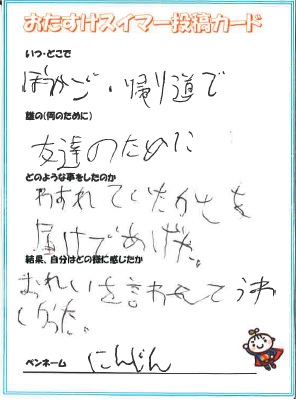 おたすけスイマー投稿カード
いつ・どこで
ぼうかご・帰り道で
誰の(何のために)
友達のために
どのような事をしたのか
わすれていたかさを
届けてあげた。
結果、自分はどの様に感じたか
おれいを言われてうれ
しかった。
ペンネーム にんじん